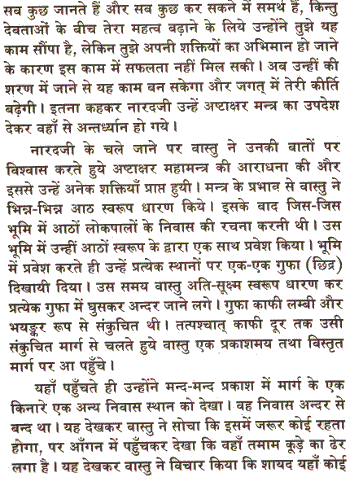 सब कुछ जानते हैं और सब कुछ कर सकने में समर्थ हैं, किन्तु
देवताओं के बीच तेरा महत्व बढ़ाने के लिये उन्होंने तुझे यह
काम सौंपा है, लेकिन तुझे अपनी शक्तियों का अभिमान हो जाने
के कारण इस काम में सफलता नहीं मिल सकी। अब उन्हीं की
शरण में जाने से यह काम बन सकेगा और जगत् में तेरी कीर्ति
बढ़ेगी। इतना कहकर नारदजी उन्हें अष्टाक्षर मन्त्र का उपदेश
देकर वहाँ से अन्तर्ध्यान हो गये।
नारदजी के चले जाने पर वास्तु ने उनकी बातों पर
विश्वास करते हुये अष्टाक्षर महामन्त्र की आराधना की और
इससे उन्हें अनेक शक्तियाँ प्राप्त हुयी। मन्त्र के प्रभाव से वास्तु ने
भिन्न-भिन्न आठ स्वरूप धारण किये। इसके बाद जिस-जिस
भूमि में आठों लोकपालों के निवास की रचना करनी थी। उस
भूमि में उन्हीं आठों स्वरूप के द्वारा एक साथ प्रवेश किया। भूमि
में प्रवेश करते ही उन्हें प्रत्येक स्थानों पर एक-एक गुफा (छिद्र)
दिखायी दिया। उस समय वास्तु अति-सूक्ष्म स्वरूप धारण कर
प्रत्येक गुफा में घुसकर अन्दर जाने लगे। गुफा काफी लम्बी और
भयङ्कर रूप से संकुचित थी। तत्पश्चात् काफी दूर तक उसी
संकुचित मार्ग से चलते हुये वास्तु एक प्रकाशमय तथा विस्तृत
मार्ग पर आ पहुँचे।
यहाँ पहुँचते ही उन्होंने मन्द-मन्द प्रकाश में मार्ग के एक
किनारे एक अन्य निवास स्थान को देखा। वह निवास अन्दर से
बन्द था। यह देखकर वास्तु ने सोचा कि इसमें जरूर कोई रहता
होगा, पर आँगन में पहुँचकर देखा कि वहाँ तमाम कूड़े का ढेर
लगा है। यह देखकर वास्तु ने विचार किया कि शायद यहाँ कोई